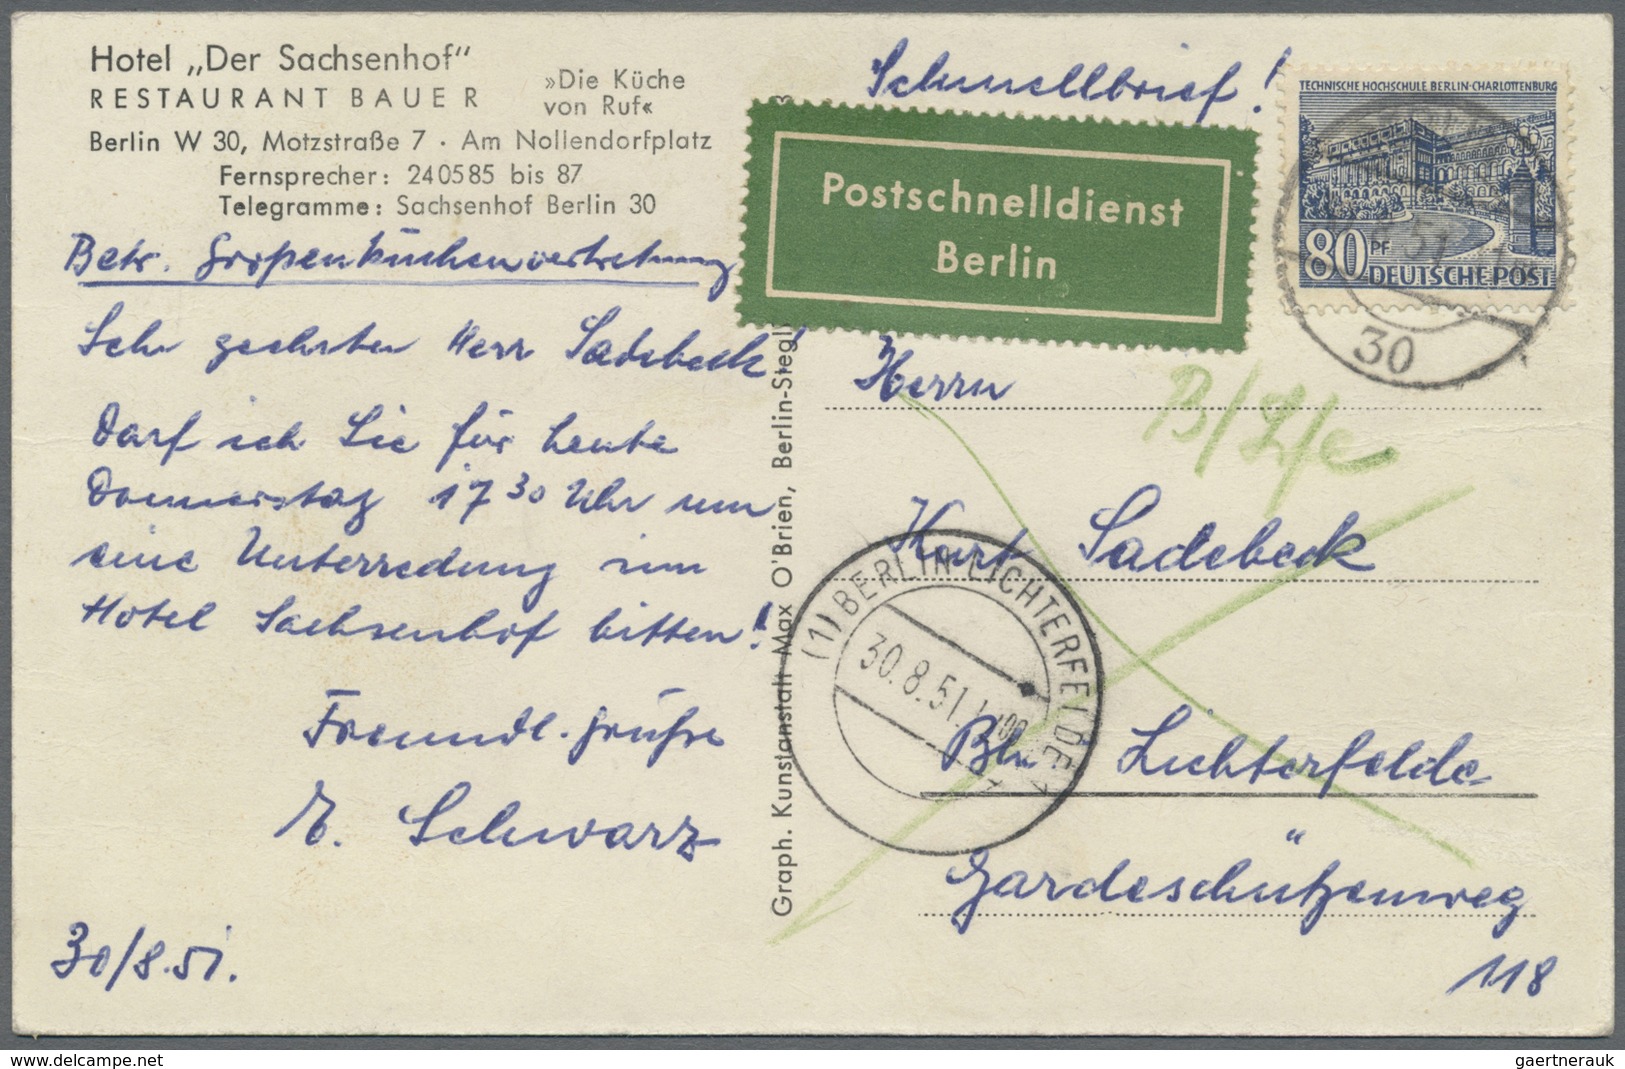 Hotel „Der Sachsenhof“
RESTAURANT BAUER
»Die Küche
von Ruf«
Berlin W 30, Motzstraße 7 · Am Nollendorfplatz
Fernsprecher: 240585 bis 87
Telegramme: Sachsenhof Berlin 30
Betr. Großenküchenvertretung
Sehr geehrter Herr Sadebeck!
Darf ich Sie für heute
Donnerstag 17 30 Uhr um
eine Unterredung im
Hotel Sachsenhof bitten!
Freundl. Grüße
E. Schwarz
30/8.51.
Graph. Kunstanstalt Max O'Brien, Berlin-Stegl
Schnellbrief!
Postschnelldienst
Berlin
TECHNISCHE HOCHSCHULE BERLIN-CHARLOTTENBURG
80 PF DEUTSCHE POST
51
30
Herrn
Kurt Sadebeck
(1) BERLIN-LICHTERFELDE 1
30.8.51.
Bln Lichterfelde
Gardeschützenweg
118
delcampe.net
gaertnerauk